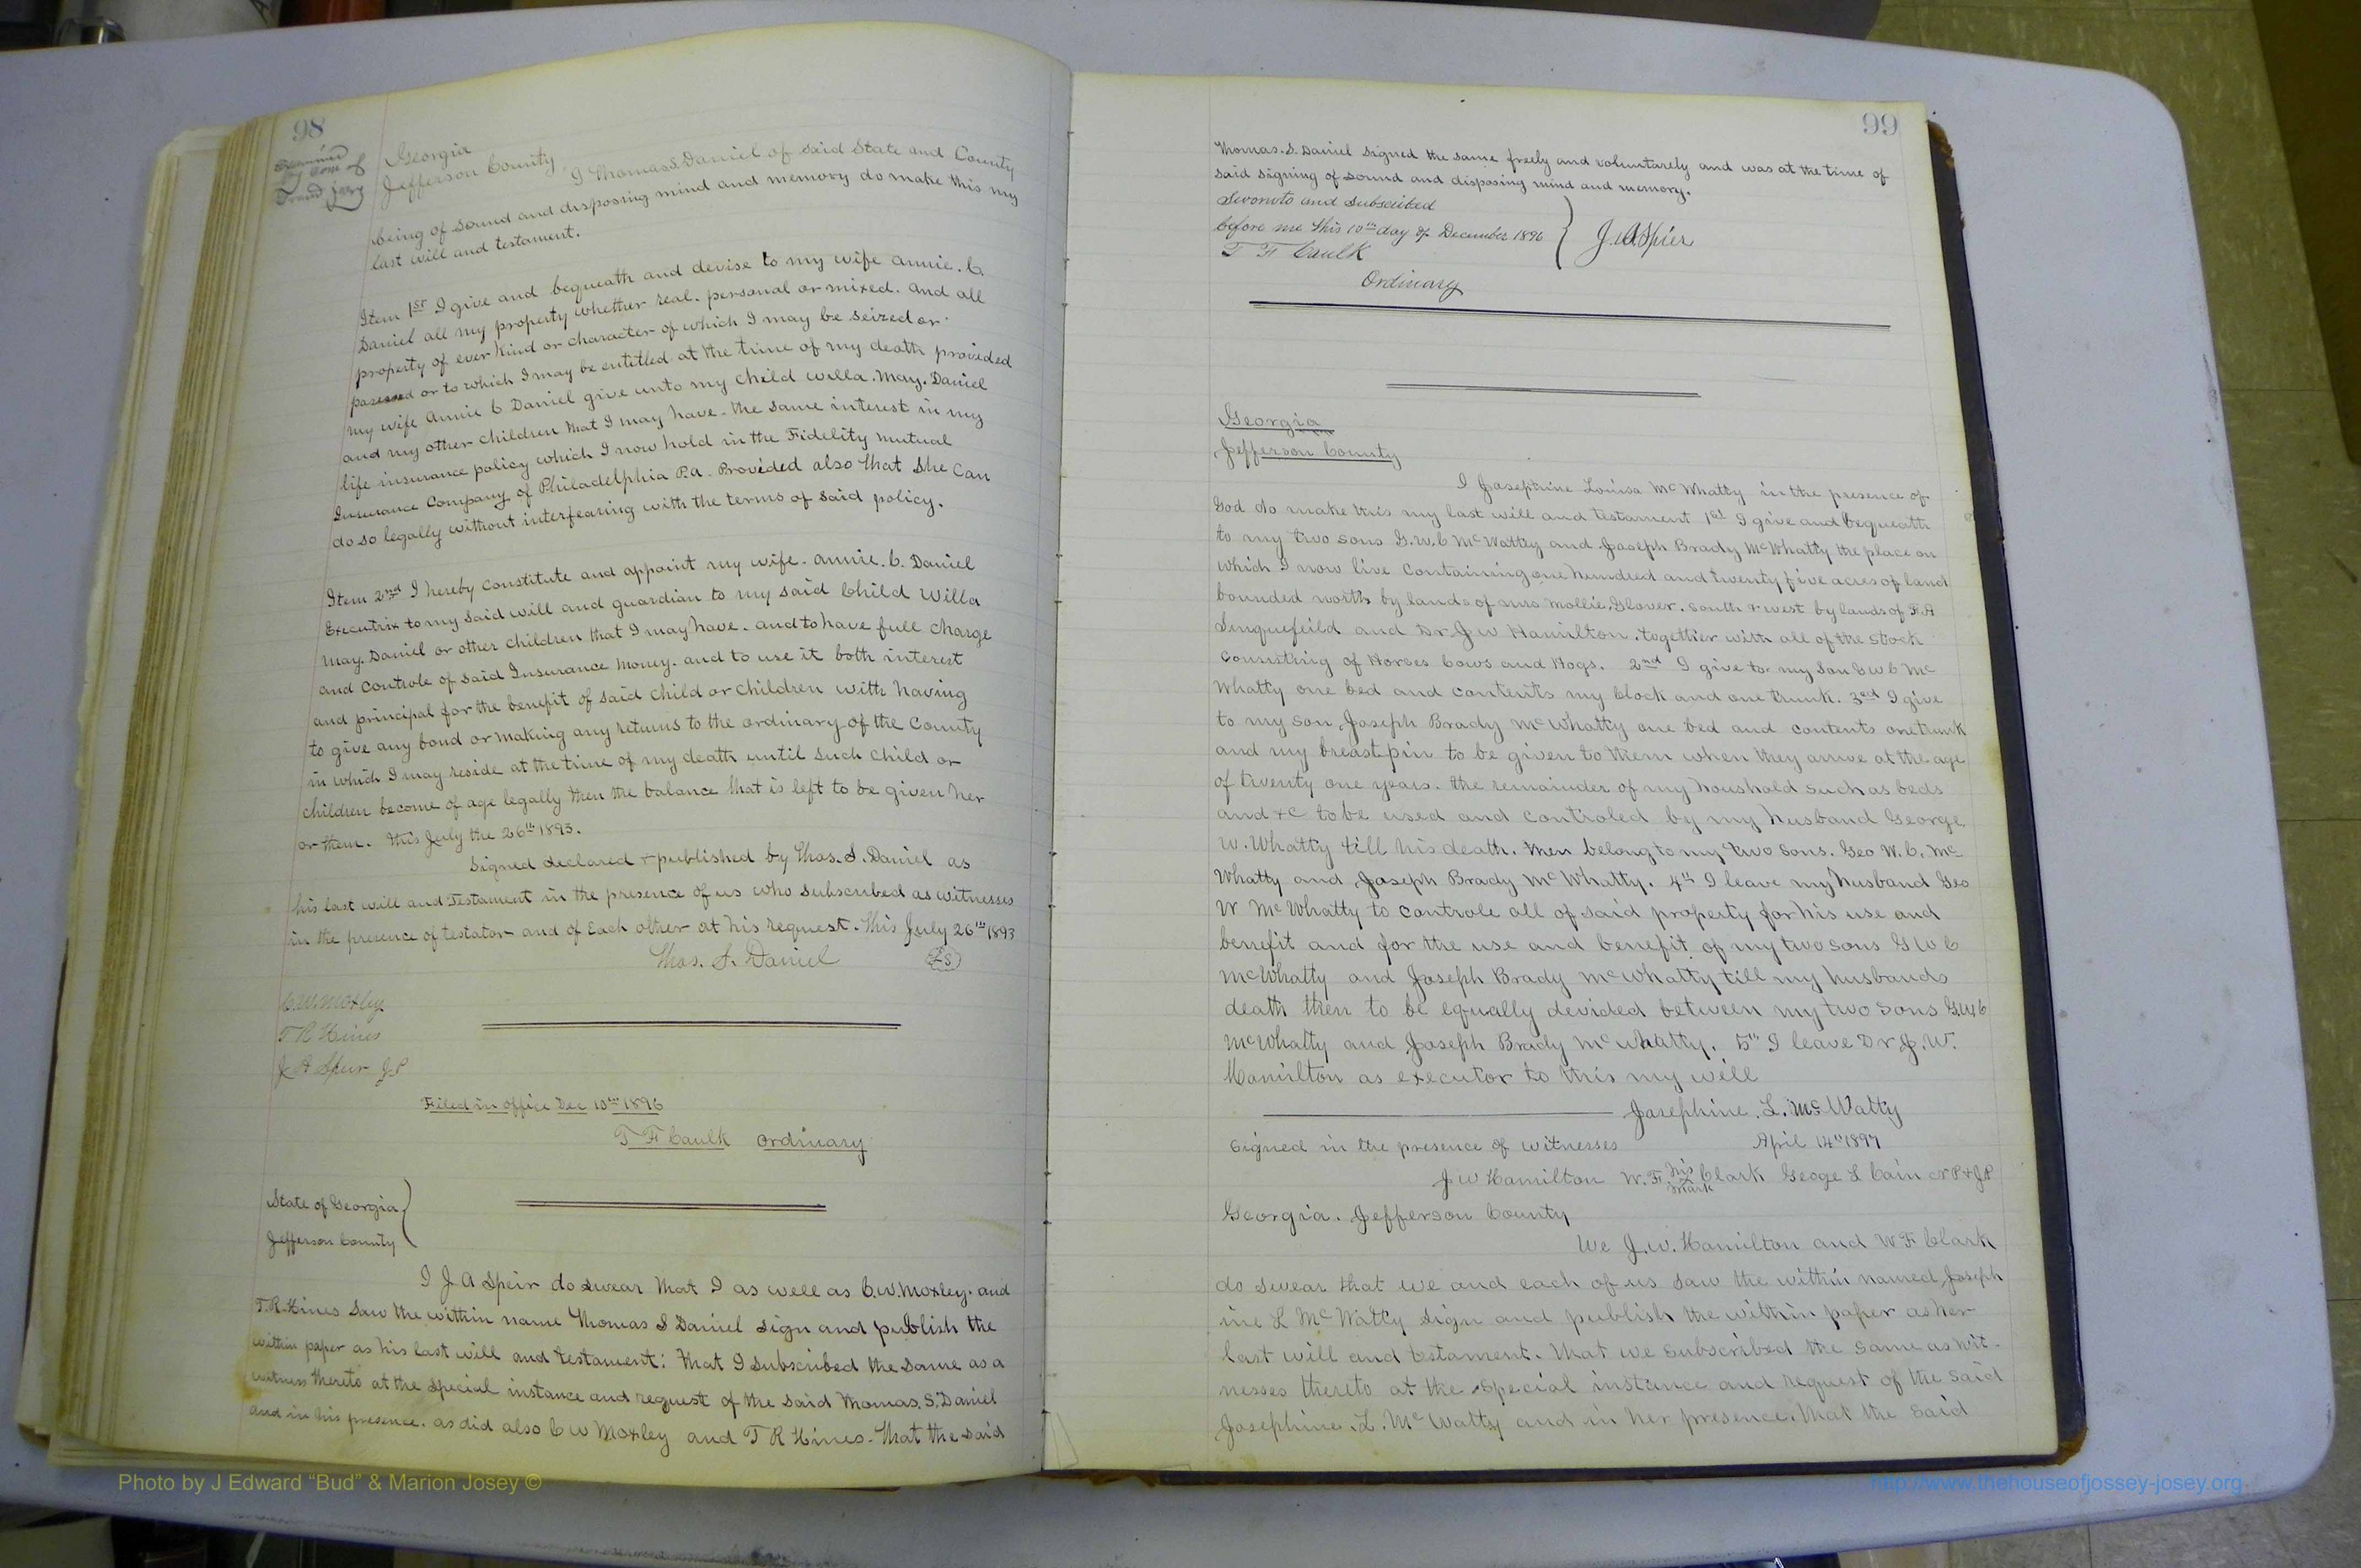 98
Examined
by Com of
Grand Jury
Georgia
Jefferson County I Thomas S. Daniel of said State and County
being of sound and disposing mind and memory do make this my
last will and testament.
Item 1st I give and bequeath and devise to my wife Annie. C
Daniel all my property whether real. personal or mixed. and all
property of ever kind or character of which I may be seized or
possessed or to which I may be entitled at the time of my death provided
my wife Annie C Daniel give unto my child Willa. May. Daniel
and my other children that I may have. the same interest in my
life insurance policy which I now hold in the Fidelity Mutual
Insurance Company of Philadelphia Pa. Provided also that she can
do so legally without interfearing with the terms of said policy.
Item 2nd I hereby constitute and appoint my wife. Annie. C. Daniel
Executrix to my said will and guardian to my said Child Willa
May. Daniel or other children that I may have. and to have full charge
and controle of said Insurance money. and to use it both interest
and principal for the benefit of said child or children with having
to give any bond or making any returns to the ordinary of the County
in which I may reside at the time of my death until such child or
children become of age legally then the balance that is left to be given her
or them. This July the 26th 1893.
Signed declared + published by Thos. S. Daniel as
his last will and Testament in the presence of us who subscribed as witnesses
in the presence of testator and of Each other at his request. This July 26th 1893
Thos. S. Daniel (LS)
C. W. Moxley
T R Hines
J A Speir J.P
Filed in office Dec 10th 1896
T F Caulk Ordinary
State of Georgia
Jefferson County
I J A Speir do swear that I as well as C. W. Moxley. and
T. R. Hines saw the within name Thomas S Daniel sign and publish the
within paper as his last will and testament: that I subscribed the same as a
witness thereto at the special instance and request of the said Thomas. S. Daniel
and in his presence. as did also C W Moxley and T R Hines. that the said
99
Thomas. S. Daniel signed the same freely and voluntarely and was at the time of
said signing of sound and disposing mind and memory.
Sworn to and subscribed
before me this 10th day of December 1896 J. A. Spier
T F Caulk
Ordinary
Georgia
Jefferson County
I Josephine Louisa McWhatty in the presence of
God do make this my last will and testament 1st I give and bequeath
to my two sons G. W. C McWattey and Joseph Brady McWhatty the place on
which I now live containing one hundred and twenty five acres of land
bounded north by lands of mrs Mollie Glover. South + west by lands of F. A
Sinquefeild and Dr J W Hamilton. together with all of the stock
consisting of Horses Cows and Hogs. 2nd I give to my Son G W C Mc
Whatty one bed and contents my Clock and one trunk. 3ed I give
to my son Joseph Brady McWhatty one bed and contents one trunk
and my breast pin to be given to them when they arrive at the age
of twenty one years. the remainder of my houshold such as beds
and +c to be used and controled by my husband George
W. Whatty till his death. then belong to my two sons. Geo W. C. Mc
Whatty and Joseph Brady McWhatty. 4th I leave my husband Geo
W McWhatty to controle all of said property for his use and
benefit and for the use and benefit of my two sons G W C
McWhatty and Joseph Brady McWhatty till my husbands
death then to be equally devided between my two sons G. W C
McWhatty and Joseph Brady McWhatty. 5th I leave Dr J. W.
Hamilton as executor to this my will
Josephine. L. McWatty
Signed in the presence of witnesses April 14th 1897
J W Hamilton W. F. his x mark Clark Geoge L Cain NP+JP
Georgia. Jefferson County
We J. W. Hamilton and W F Clark
do swear that we and each of us saw the within named Joseph
ine L McWatty sign and publish the within paper as her
last will and testament. that we subscribed the same as wit-
nesses thereto at the special instance and request of the said
Josephine. L. McWatty and in her presence. that the said
Photo by J Edward “Bud” & Marion Josey ©
http://www.thehouseofjossey-josey.org